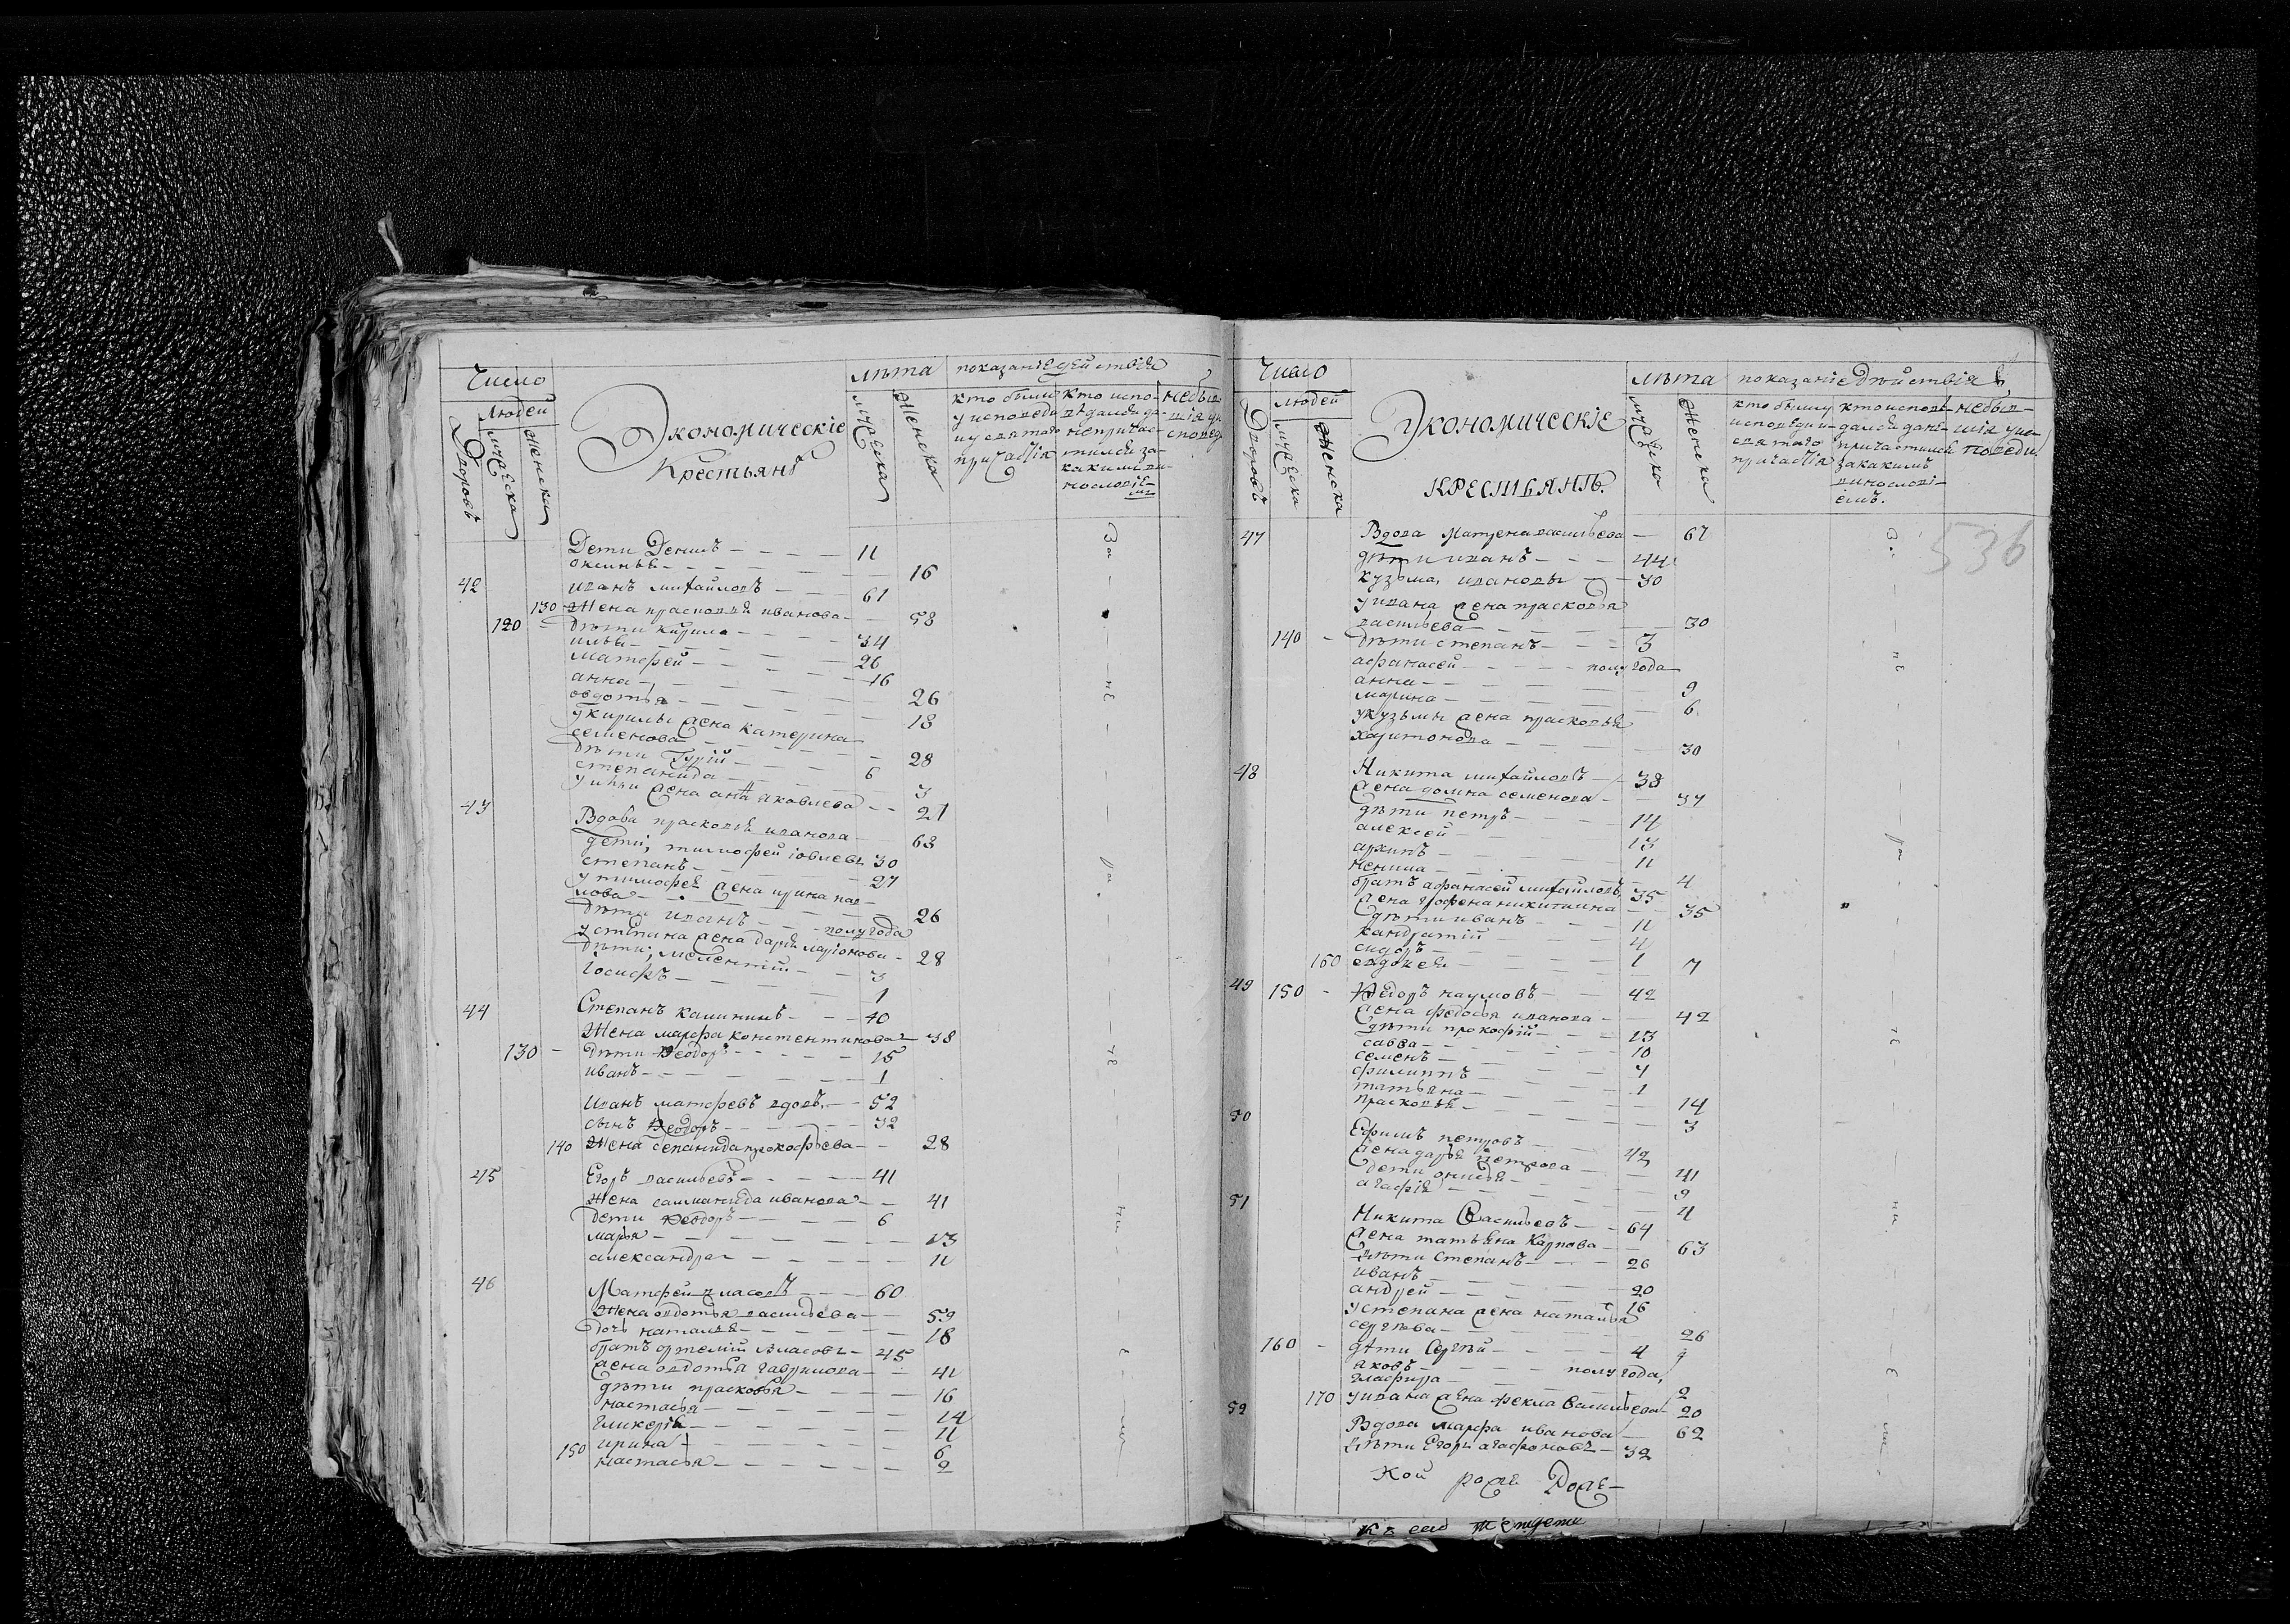 Число
Людей
Дворовъ
мужеска
женска
Экономическіе
Крестьянѣ
лѣта
мужеска
женска
показаніе действія
кто были
у исповеди
и у святаго
причастія
кто испо-
ведался да
непричас-
тился за
какимъ ви-
нословіе-
мъ
Дети Денисъ 11
оксинья 16
42 иванъ михайловъ 61
130 Жена прасковья иванова 58
120 Дѣти кирила 34
илья 26
матфей 16
анна 26
овдотья 18
у кирилы жена катерина
семенова 28
дѣти Гурій 6
степанида 3
у ильи жена анна яковлева 21
43 Вдова прасковья иванова 63
дети, тимофей іовлевъ 30
степанъ 27
у тимофея жена ирина пав-
лова 26
дѣти иванъ полугода
у степана жена дарья ларіонова 28
дѣти, мелентій 3
Іосифъ 1
44 Степанъ калининъ 40
Жена марфа константинова 38
130 дѣти Феодоръ 15
иванъ 1
Иванъ матфеевъ вдовъ 52
сынъ Феодоръ 32
140 Жена степанида прокофьева 28
45 Егоръ васильевъ 41
Жена саламанида иванова 41
Дети Феодоръ 6
марья 13
александра 11
46 Матфей власовъ 60
Жена овдотья васильева 59
Дочь наталья 18
братъ ортемій власовъ 45
жена овдотья гаврилова 41
дѣти прасковья 16
настасья 14
гликерія 11
150 ирина 6
настасья 2
Число
Людей
Дворовъ
мужеска
женска
Экономическіе
КРЕСТЬЯНѢ.
лѣта
мужеска
женска
показаніе дѣйствія
кто были у
исповеди и
святаго
причастія
кто испов-
едался да не
причастился
за какимъ
винослові-
емъ.
не был-
ши у ис-
поведи
536
47 Вдова Матрена васильева 67
дѣти иванъ 44
кузьма, ивановы 30
у ивана жена прасковья
васильева 30
140 дѣти степанъ 3
афанасей полугода
анна 9
марина 6
у кузьмы жена прасковья
харитонова 30
48 Никита михайловъ 38
жена домна семенова 37
дѣти петръ 14
алексей 13
архипъ 11
ненила 4
братъ афанасей михайловъ 35
жена графена никитина 35
дѣти иванъ 11
кандратій 4
сидоръ 1
160 евдокея 7
49 150 Федоръ наумовъ 42
жена федосья иванова 42
дѣти прокофій 13
савва 10
семенъ 7
филиппъ 1
татьяна 14
прасковья 3
50 Ефимъ петровъ 42
жена дарья петрова 41
дети 9
агафія 4
51 Никита Васильевъ 64
жена татьяна Карпова 63
дѣти Степанъ 26
иванъ 20
андрей 16
у степана жена наталья
сергѣева 26
160 дѣти Сергѣй 4
яковъ полугода,
глафира 2
170 у ивана жена фекла Васильева 20
52 Вдова марфа иванова 62
дѣти Егоръ агафоновъ 32